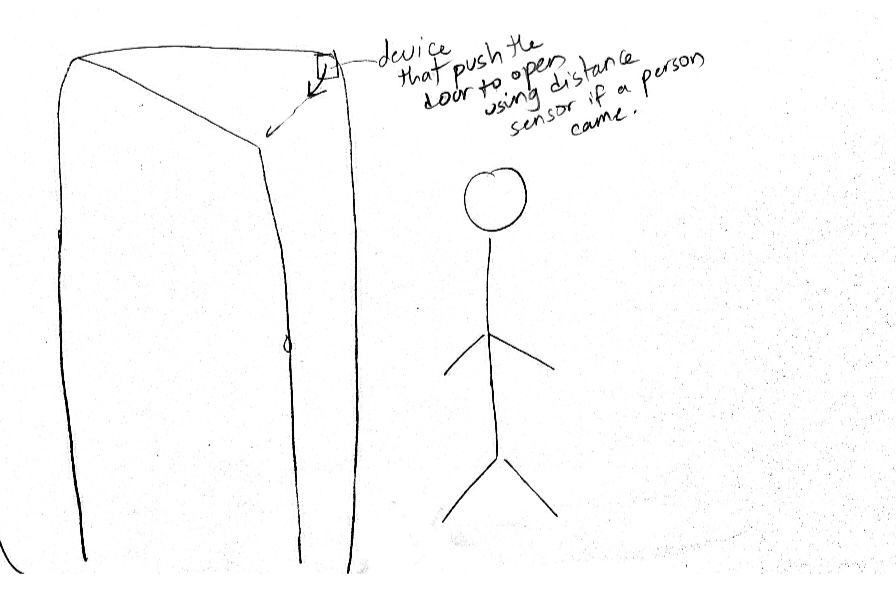 device
that push the
door to open
using distance
sensor if a person
came.